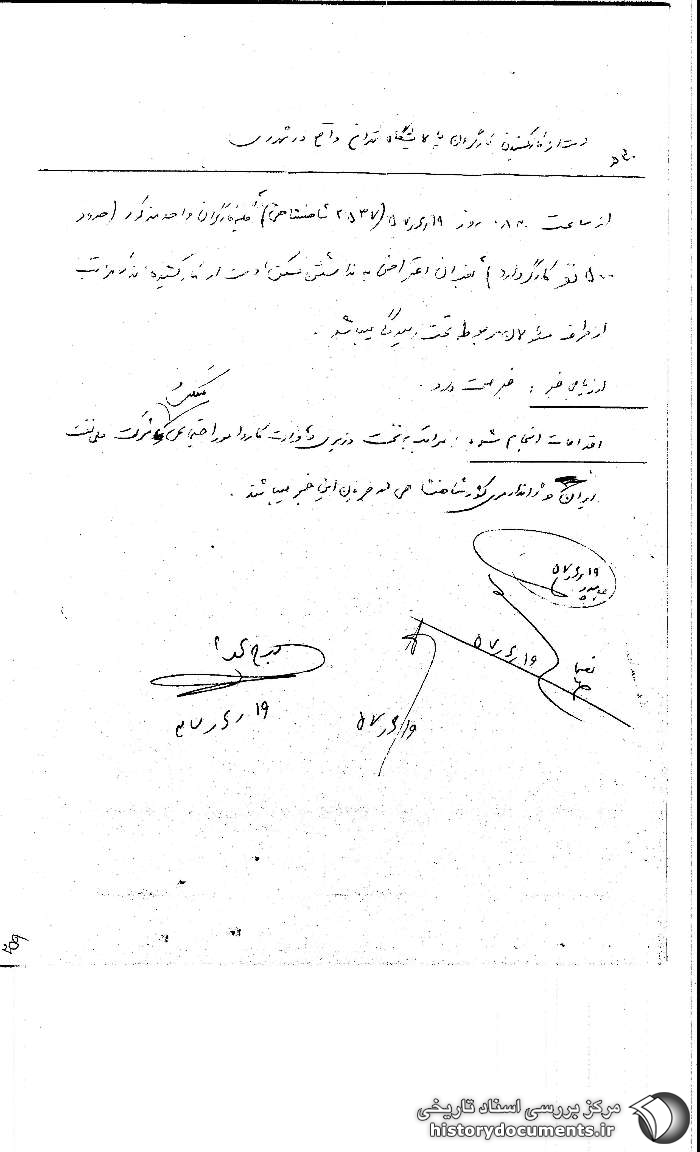 دست از کار کشیدن کارگران پالایشگاه تهران واقع در شهرری
از ساعت ۰۸۳۰ روز ۱۹/۶/۵۷ (۲۵۳۷ شاهنشاهی) کلیه کارگران واحد مذکور (حدود
۱۵۰۰ نفر کارگر دارد) بعنوان اعتراض به نداشتن مسکن دست از کار کشیده اند مراتب
از طرف مسئولان مربوط تحت رسیدگی میباشد.
ارزیابی خبر: خبر صحت دارد.
مسکن
اقدامات انجام شده: مراتب به نخست وزیری وزارت کار و امور اجتماعی شرکت ملی نفت
ایران و ژاندارمری کشور شاهنشاهی در جریان این خبر میباشند.
۱۹/۶/۵۷
۱۹/۶/۵۷
۱۹/۶/۵۷
۱۹/۶/۳۷
مرکز بررسی اسناد تاریخی
historydocuments.ir